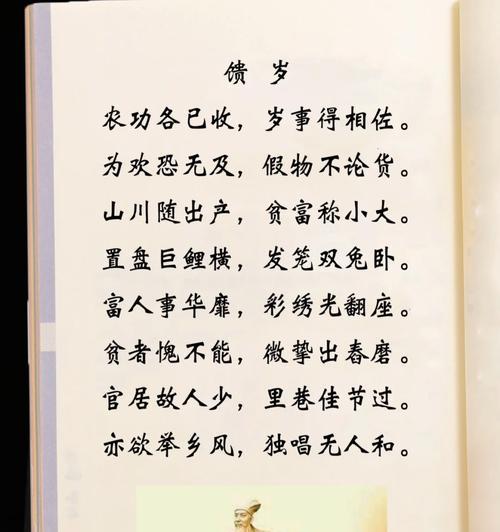 馈岁
农功各已收，岁事得相佐。
为欢恐无及，假物不论货。
山川随出产，贫富称小大。
置盘巨鲤横，发笼双兔卧。
富人事华靡，彩绣光翻座。
贫者愧不能，微挚出舂磨。
官居故人少，里巷佳节过。
亦欲举乡风，独唱无人和。